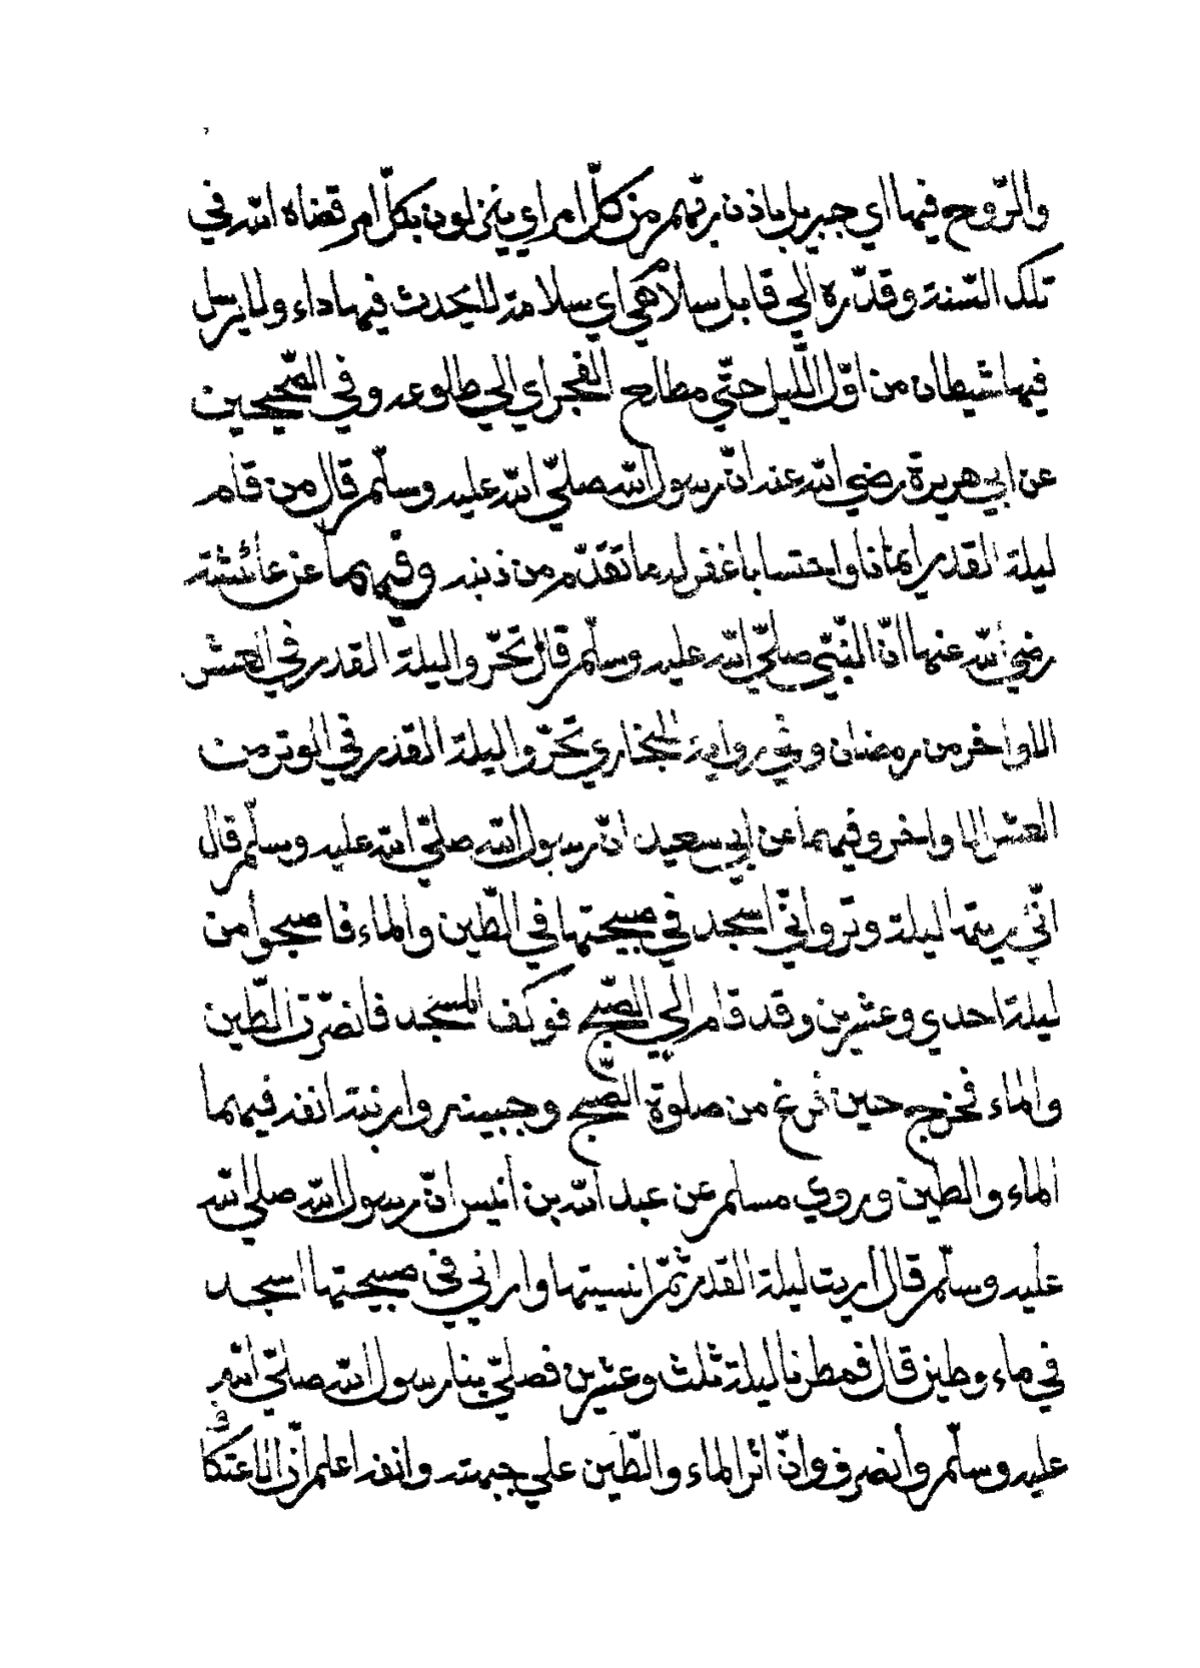 والرّوح فيها اي جبريل باذن ربّهم من كلّ امر اي ينزلون بكلّ امر قضاه الله في
تلك السّنة وقدّره الي قابل سلام هي اي سلامة لا يحدث فيها داء ولا يرسل
فيها شيطان من اوّل اللّيل حتّي مطلع الفجر اي الي طلوعه وفي الصّحيحين
عن ابي هريرة رضي الله عنه انّ رسول الله صلّي الله عليه وسلّم قال من قام
ليلة القدر ايمانا واحتسابا غفر له ما تقدّم من ذنبه وفيهما عن عائشة
رضي الله عنها انّ النّبيّ صلّي الله عليه وسلّم قال تحرّوا ليلة القدر في العشر
الاواخر من رمضان وفي رواية البخاري تحرّوا ليلة القدر في الوتر من
العشر الاواخر وفيهما عن ابي سعيد انّ رسول الله صلّي الله عليه وسلّم قال
انّي اريتها ليلة وتر وانّي اسجد في صبيحتها في الطّين والماء فاصبحوا من
ليلة احدي وعشرين وقد قام الي الصّبح فوكف المسجد فابصرت الطّين
والماء فخرج حين فرغ من صلوة الصّبح وجبينه وارنبة انفه فيهما
الماء والطين وروي مسلم عن عبد الله بن أنيس انّ رسول الله صلي الله
عليه وسلّم قال أريت ليلة القدر ثمّ انسيتها واراني في صبيحتها اسجد
في ماء وطين قال فمطرنا ليلة ثلث وعشرين فصلّي بنا رسول الله صلّي الله
عليه وسلّم وأنصرف وانّ اثر الماء والطّين علي جبهته وانفه اعلم أنّ الاعتكاف